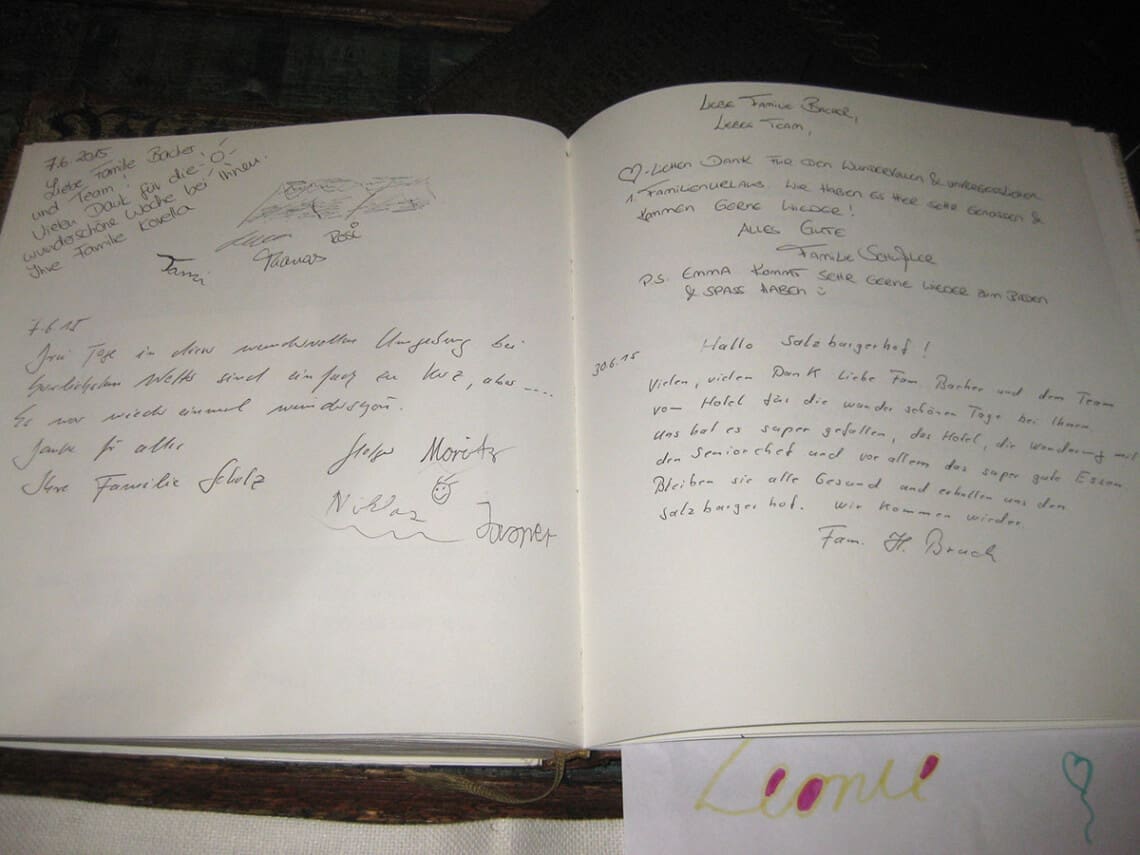 7.6.2015
Liebe Familie Bacher
und Team!
Vielen Dank für die
wunderschöne Woche bei Ihnen.
Ihre Familie
Rosi
Thomas
7.6.15
Drei Tage in dieser wundervollen Umgebung bei
herrlichstem Wetter sind einfach zu kurz, aber ....
Es war wieder einmal wunderschön.
Danke für alles
Ihre Familie Scholz
Holger Moritz
Niklas
LIEBE FAMILIE BACHER,
LIEBES TEAM,
♡-LICHEN DANK FÜR DEN WUNDERVOLLEN & UNVERGESSLICHEN
1. FAMILIENURLAUB. WIR HABEN ES HIER SEHR GENOSSEN &
KOMMEN GERNE WIEDER!
ALLES GUTE
FAMILIE
P.S. EMMA KOMMT SEHR GERNE WIEDER ZUM BADEN
& SPASS HABEN
Hallo Salzburgerhof!
30.6.15
Vielen, vielen Dank liebe Fam. Bacher und dem Team
vom Hotel für die wunder schönen Tage bei Ihnen
Uns hat es super gefallen, das Hotel, die Wanderung mit
den Seniorchef und vor allem das super gute Essen.
Bleiben sie alle Gesund und erhalten uns den
Salzburger hof. Wir kommen wieder.
Fam. H. Bruch
Leonie